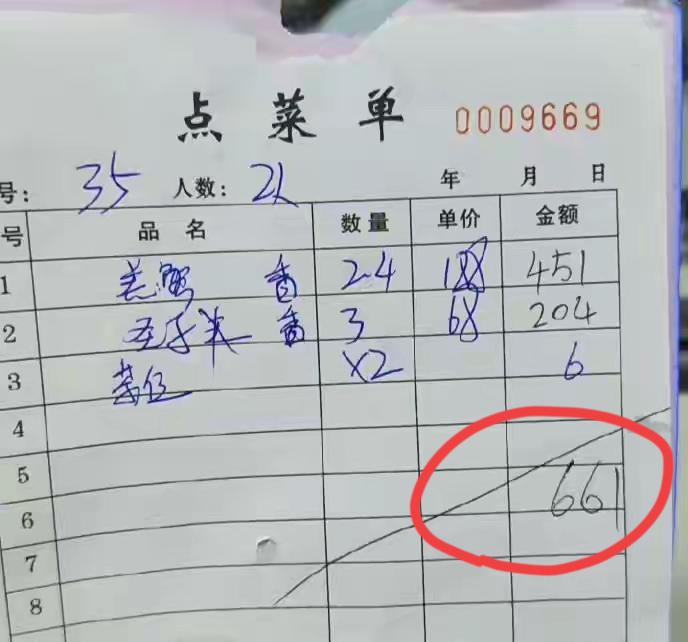 点菜单 0009669
号: 35 人数: 2人 年 月 日
号 品名 数量 单价 金额
1 羔蟹 香 2.4 188 451
2 香 3 68 204
3 茶位 x2 6
4
5
6 661
7
8